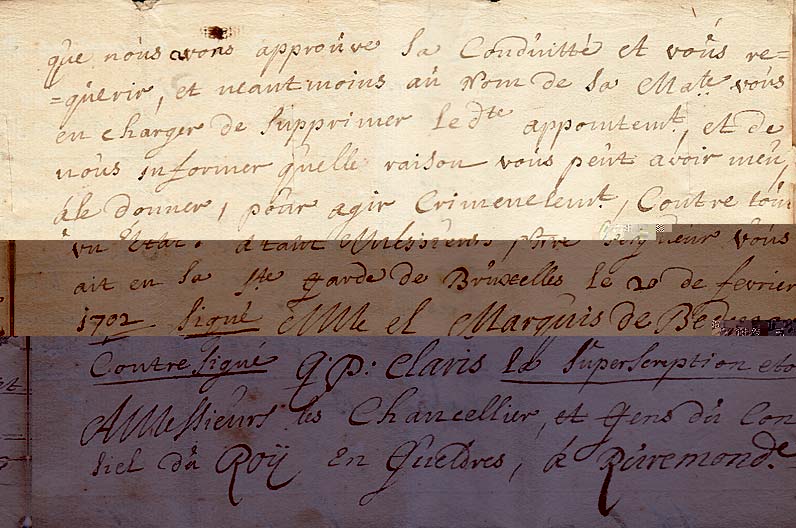 que nous avons approuve sa Conduitte et vous re=
=querir, et neantmoins au Nom de sa Mate vous
en charger de supprimer le dte appointemt, et de
nous informer quelle raison vous peut avoir meu,
a le donner, pour agir Crimenelemt, Contre tout
vn Etat. atant Messieurs, nre Seigneur vous
ait en sa Ste garde de Bruxelles le 20 de fevrier
1702 signé el Marquis de
Contresigné q: p: Claris la superscription
AMessieurs les Chancellier, et gens du Con
siel du Roÿ en Gueldres, à Ruremonde